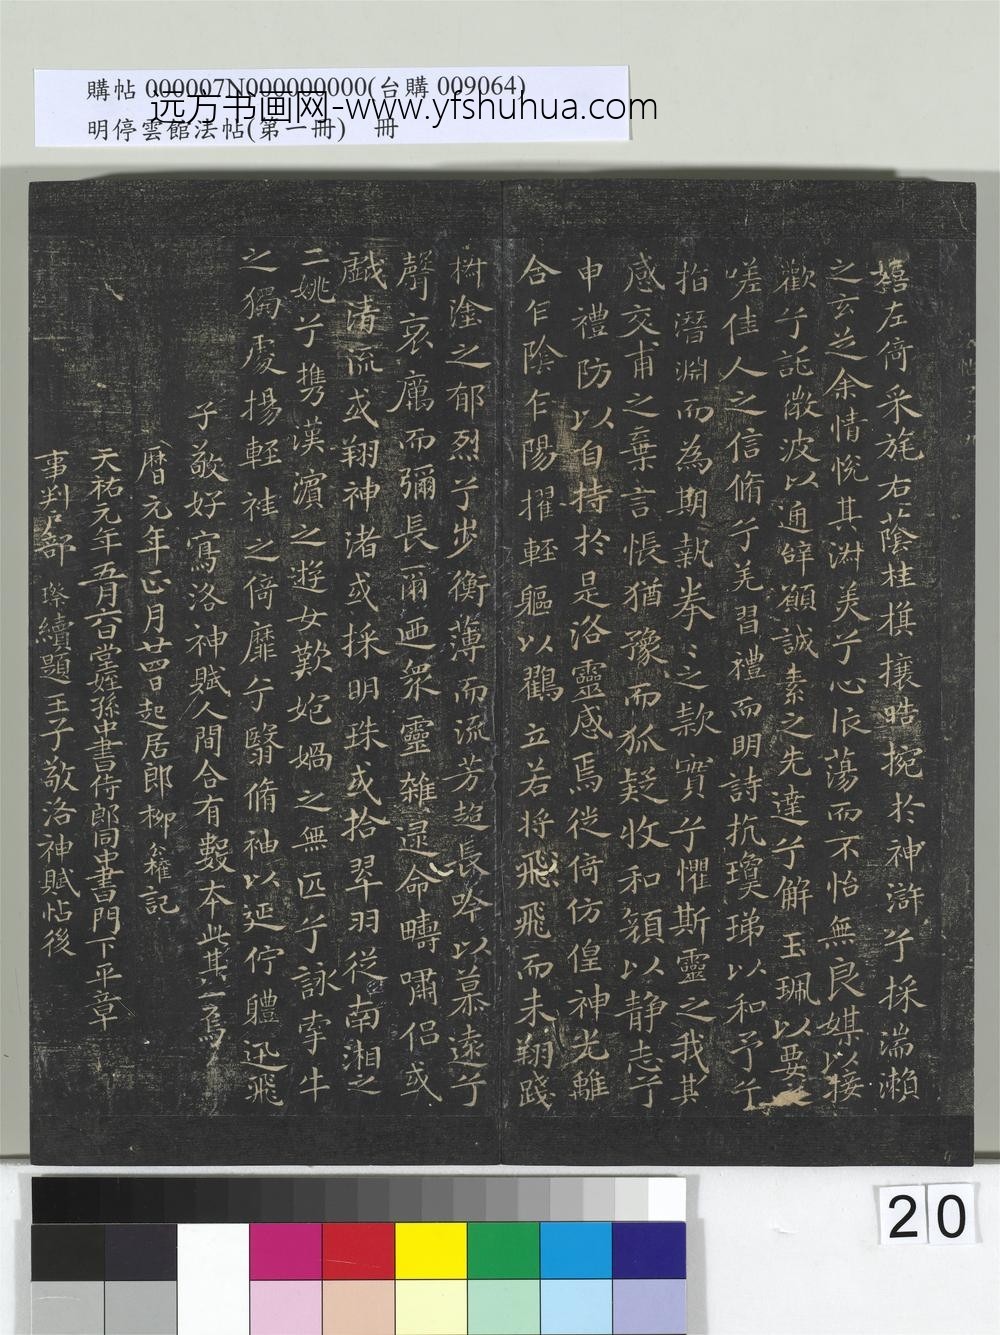 購帖 000007N000000000(台購 009064)
远方书画网-www.yfshuhua.com
明停雲館法帖(第一冊) 冊
嬉左倚采旄右蔭桂旗攘皓捥於神滸兮採湍瀨
之玄芝余情悅其淋美兮心依蕩而不怡無良媒以接
歡兮託微波以通辝願誠素之先達兮解玉珮以要
嗟佳人之信脩兮羌習禮而明詩抗瓊珶以和予兮
指潛淵而為期執拳〻之款實兮懼斯靈之我其
感交甫之棄言悵猶豫而狐疑收和顏以静志兮
申禮防以自持於是洛靈感焉徙倚仿偟神光離
合乍陰乍陽擢輊軀以鸛立若将飛飛而未翔踐
樹塗之郁烈兮步衡薄而流芳超長吟以慕遠兮
聲哀厲而彌長爾迺衆靈雜遝命疇嘯侣或
戲清流或翔神渚或採明珠或拾翠羽従南湘之
二姚兮携漢濵之遊女歎妑媧之無匹兮詠牽牛
之獨處揚輊袿之倚靡兮翳脩袖以延佇軆迅飛
子敬好寫洛神賦人間合有數本此其一焉
曆元年正月廿四日起居郎柳公權記
天祐元年五月六日堂姪孫中書侍郎同中書門下平章
事判户部璨續題王子敬洛神賦帖後
20